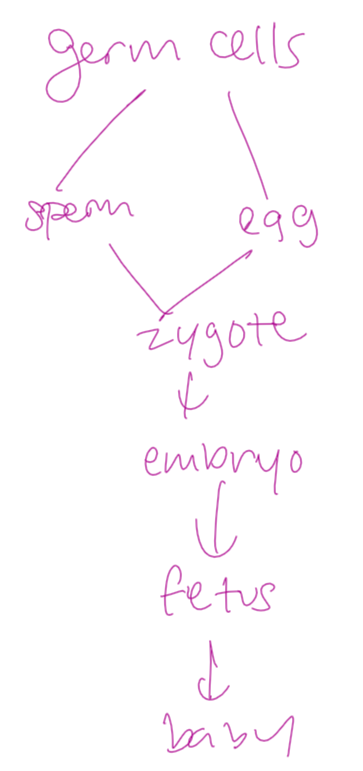 germ cells
sperm egg
zygote
embryo
fetus
baby